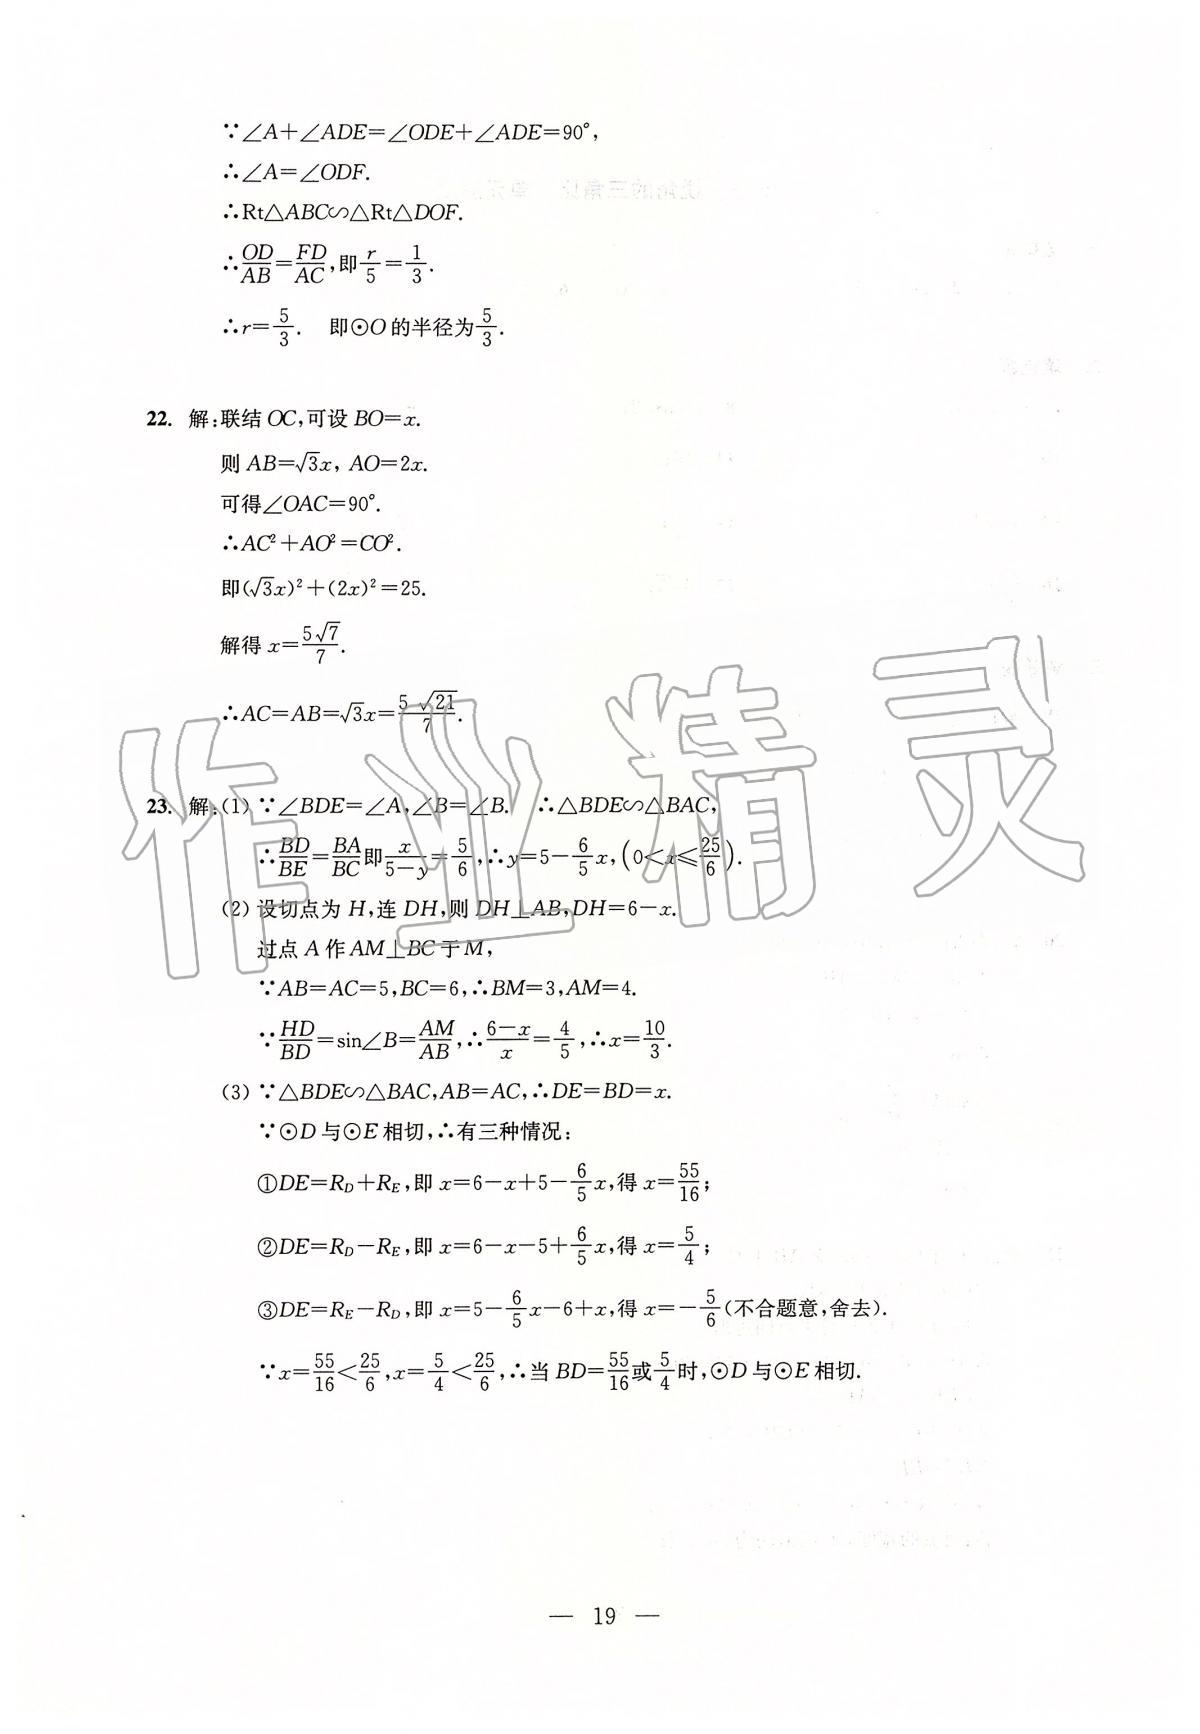 ∵∠A+∠ADE=∠ODE+∠ADE=90°,
∴∠A=∠ODF.
∴Rt△ABC∽△Rt△DOF.
∴OD/AB=FD/AC,即r/5=1/3.
∴r=5/3. 即⊙O的半径为5/3.
22. 解:联结OC,可设BO=x.
则AB=√3x, AO=2x.
可得∠OAC=90°.
∴AC²+AO²=CO².
即(√3x)²+(2x)²=25.
解得x=5√7/7.
∴AC=AB=√3x=5√21/7.
23. 解:(1) ∵∠BDE=∠A,∠B=∠B. ∴△BDE∽△BAC,
∴BD/BE=BA/BC即x/(5-y)=5/6,∴y=5-6/5x,(0<x≤25/6).
(2) 设切点为H,连DH,则DH⊥AB,DH=6-x.
过点A作AM⊥BC于M,
∵AB=AC=5,BC=6,∴BM=3,AM=4.
∵HD/BD=sin∠B=AM/AB,∴(6-x)/x=4/5,∴x=10/3.
(3) ∵△BDE∽△BAC,AB=AC,∴DE=BD=x.
∵⊙D与⊙E相切,∴有三种情况:
①DE=R_D+R_E,即x=6-x+5-6/5x,得x=55/16;
②DE=R_D-R_E,即x=6-x-5+6/5x,得x=5/4;
③DE=R_E-R_D,即x=5-6/5x-6+x,得x=-5/6(不合题意,舍去).
∵x=55/16<25/6,x=5/4<25/6,∴当BD=55/16或5/4时,⊙D与⊙E相切.
作业精灵
— 19 —